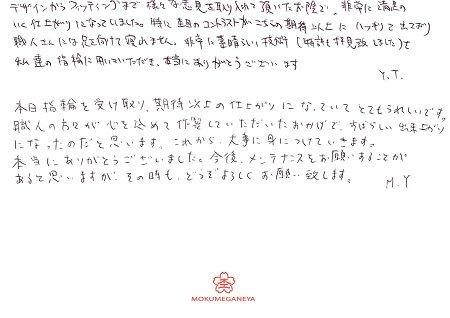 デザインからフィッティングまで様々な意見を取り入れて頂いたお陰で、非常に満足の
いく仕上がりになっていました。特に木目のコントラストがこちらの期待以上にハッキリと出ており
職人さんには足を向けて寝れません。非常に素晴らしい技術(特許も拝見致しました)を
私達の指輪に用いていただき、本当にありがとうございます
Y.T.
本日指輪を受け取り、期待以上の仕上がりになっていてとてもうれしいです。
職人の方々が心を込めて作製していただいたおかげで、すばらしい出来上がり
になったのだと思います。これから、大事に身につけていきます。
本当にありがとうございました。今後、メンテナンスをお願いすることが
あると思いますが、その時も、どうぞよろしくお願い致します。
M.Y
MOKUMEGANEYA